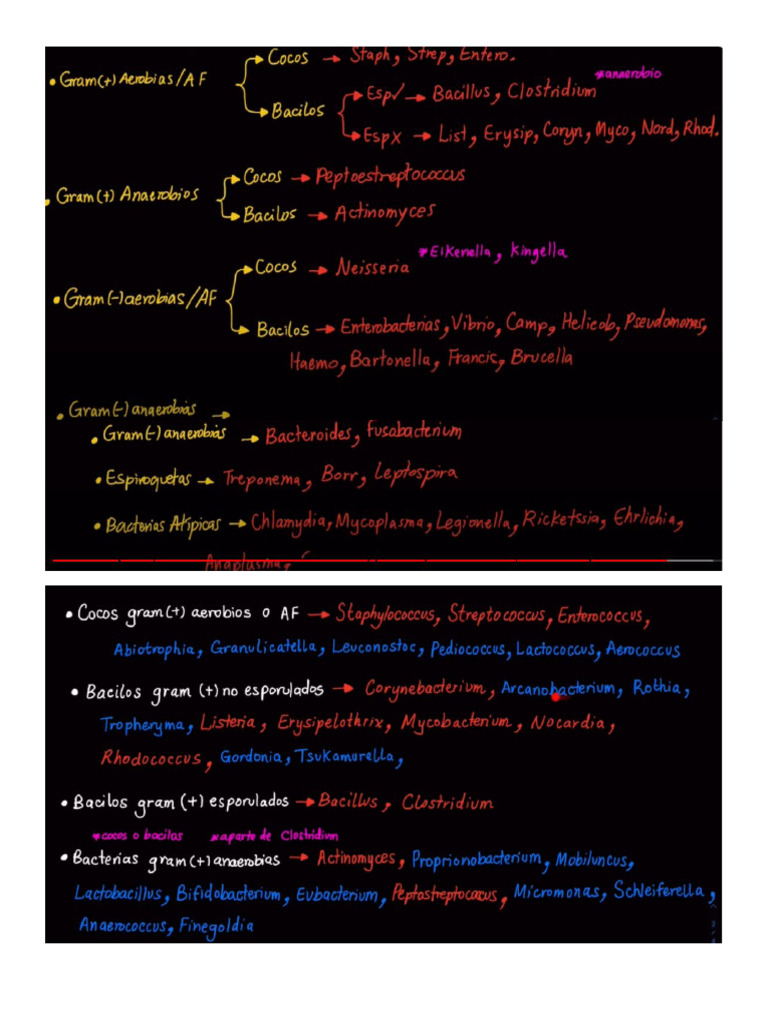 Cocos → Staph, Strep, Entero.
• Gram(+) Aerobias/AF
*anaerobio
Bacilos
Esp✓ → Bacillus, Clostridium
Espx → List, Erysip, Coryn, Myco, Nord, Rhod.
Cocos → Peptoestreptococcus
• Gram(+) Anaerobios
Bacilos → Actinomyces
*Eikenella, Kingella
Cocos → Neisseria
• Gram(-) aerobias/AF
Bacilos → Enterobacterias, Vibrio, Camp, Helicob, Pseudomonas,
Haemo, Bartonella, Francis, Brucella
• Gram(-) anaerobias →
• Gram(-) anaerobias → Bacteroides, Fusobacterium
• Espiroquetas → Treponema, Borr, Leptospira
• Bacterias Atipicas → Chlamydia, Mycoplasma, Legionella, Ricketssia, Ehrlichia,
Anaplasma,
• Cocos gram(+) aerobios o AF → Staphylococcus, Streptococcus, Enterococcus,
Abiotrophia, Granulicatella, Leuconostoc, Pediococcus, Lactococcus, Aerococcus
• Bacilos gram (+) no esporulados → Corynebacterium, Arcanobacterium, Rothia,
Tropheryma, Listeria, Erysipelothrix, Mycobacterium, Nocardia,
Rhodococcus, Gordonia, Tsukamurella,
• Bacilos gram (+) esporulados → Bacillus, Clostridium
*cocos o bacilos *aparte de Clostridium
• Bacterias gram(+) anaerobias → Actinomyces, Proprionobacterium, Mobiluncus,
Lactobacillus, Bifidobacterium, Eubacterium, Peptostreptococcus, Micromonas, Schleiferella,
Anaerococcus, Finegoldia